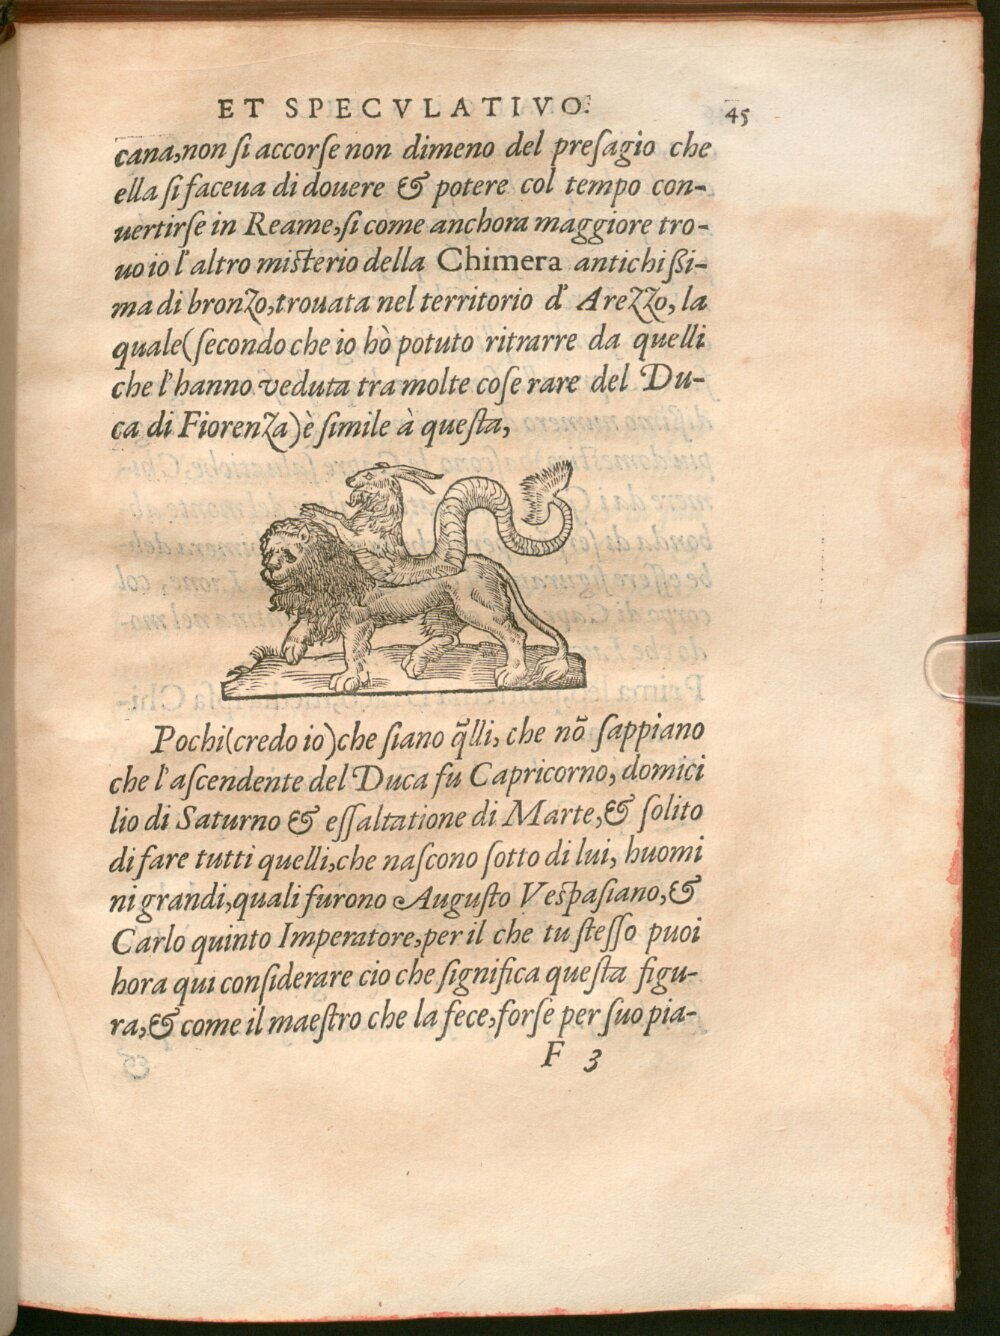 ET SPECVLATIVO. 45
cana, non ſi accorſe non dimeno del preſagio che
ella ſi faceua di douere & potere col tempo con-
uertirſe in Reame, ſi come anchora maggiore tro-
uo io l'altro miſterio della Chimera antichißi-
ma di bronzo, trouata nel territorio d' Arezzo, la
quale (ſecondo che io hò potuto ritrarre da quelli
che l'hanno veduta tra molte coſe rare del Du-
ca di Fiorenza) è ſimile à queſta,
Pochi (credo io) che ſiano q̃lli, che nõ ſappiano
che l'aſcendente del Duca fu Capricorno, domici
lio di Saturno & eſſaltatione di Marte, & ſolito
di fare tutti quelli, che naſcono ſotto di lui, huomi
ni grandi, quali furono Auguſto Veſpaſiano, &
Carlo quinto Imperatore, per il che tu ſteſſo puoi
hora qui conſiderare cio che ſignifica queſta figu-
ra, & come il maeſtro che la fece, forſe per ſuo pia-
F 3